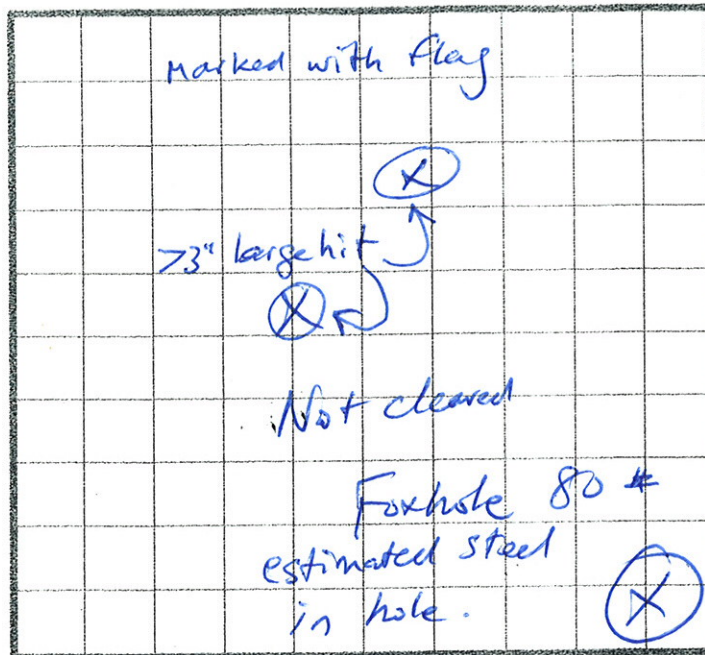 Marked with flag
X
>3" large hit
X
Not cleared
Foxhole 80 #
estimated steel
in hole.
X